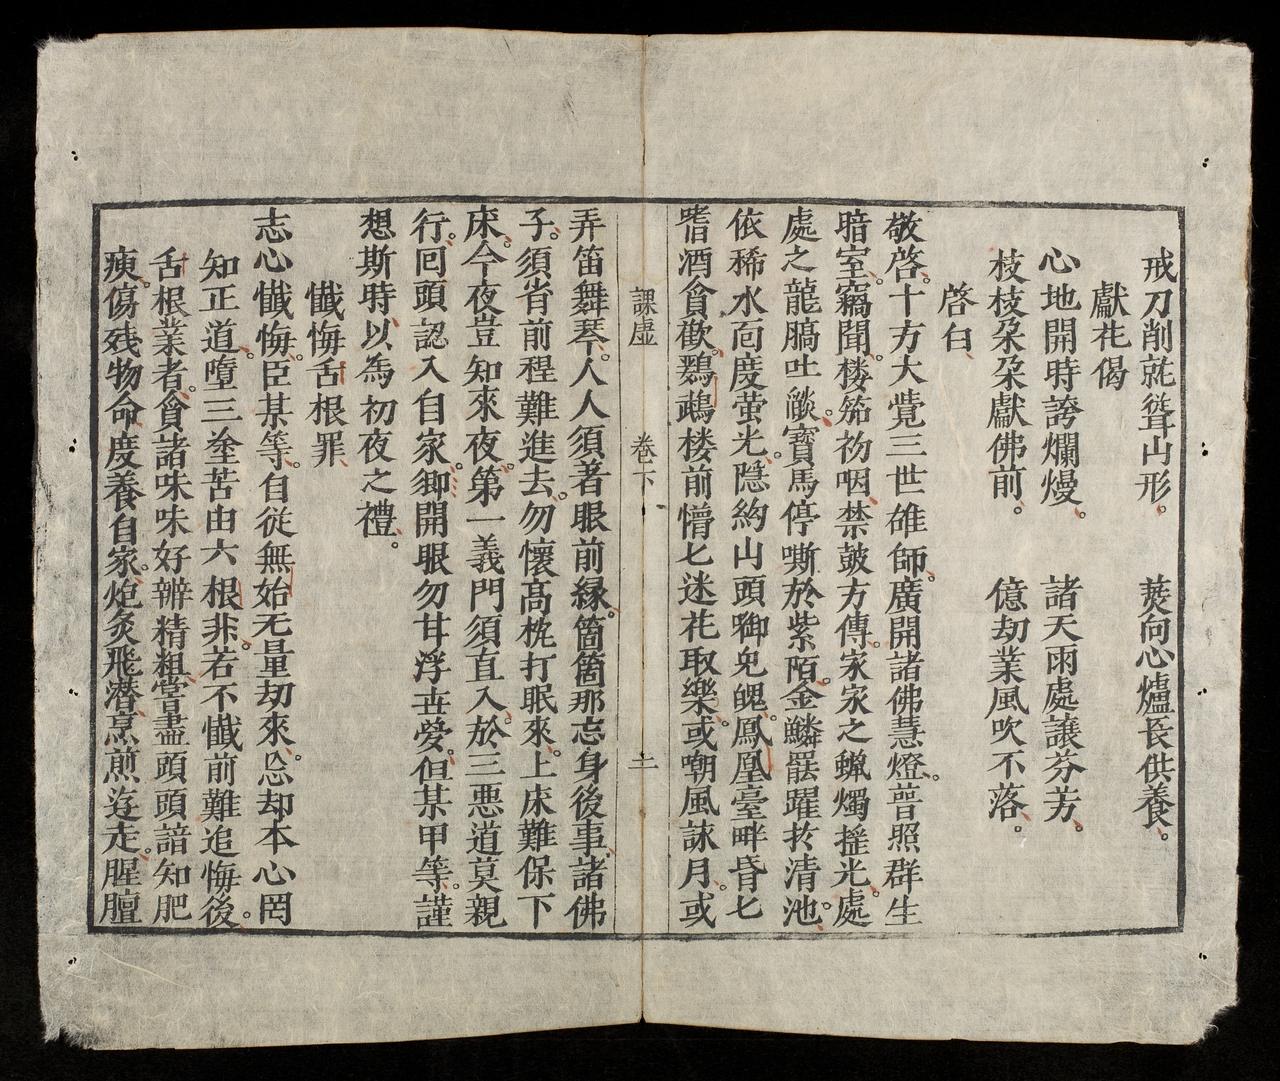 戒刀削就聳山形。 爇向心爐長供養。
獻花偈
心地開時誇爛熳。 諸天雨處讓芬芳。
枝枝朶朶獻佛前。 億劫業風吹不落。
啓白
敬啓。十方大覺三世雄師。廣開諸佛慧燈。普照群生
暗室。竊聞。楼笳初咽禁皷方傳。家家之蠟燭揺光處
處之龍膓吐燄。寶馬停嘶於紫陌。金鱗罷躍於清池。
依稀水面度萤光。隱約山頭啣兎魄。鳳凰臺畔昏七
嗜酒貪歡。鸚鵡楼前懵七迷花取樂。或嘲風詠月。或
課虛 卷下 十一
弄笛舞琴。人人須著眼前縁。箇箇那忘身後事諸佛
子。須省前程難進去。勿懷高枕打眠來。上床難保下
床。今夜豈知來夜。第一義門須直入。於三惡道莫親
行。囘頭認入自家鄉開眼勿甘浮丗愛。但某甲等。謹
想斯時以為初夜之禮。
懺悔舌根罪
志心懺悔。臣某等。自従無始无量劫來。忘却本心罔
知正道。墮三塗苦由六根非。若不懺前難追悔後。
舌根業者。貪諸味味好辨精粗甞盡頭頭諳知肥
瘐。傷残物命。度養自家。炮炙飛潜。烹煎迯走。腥膻